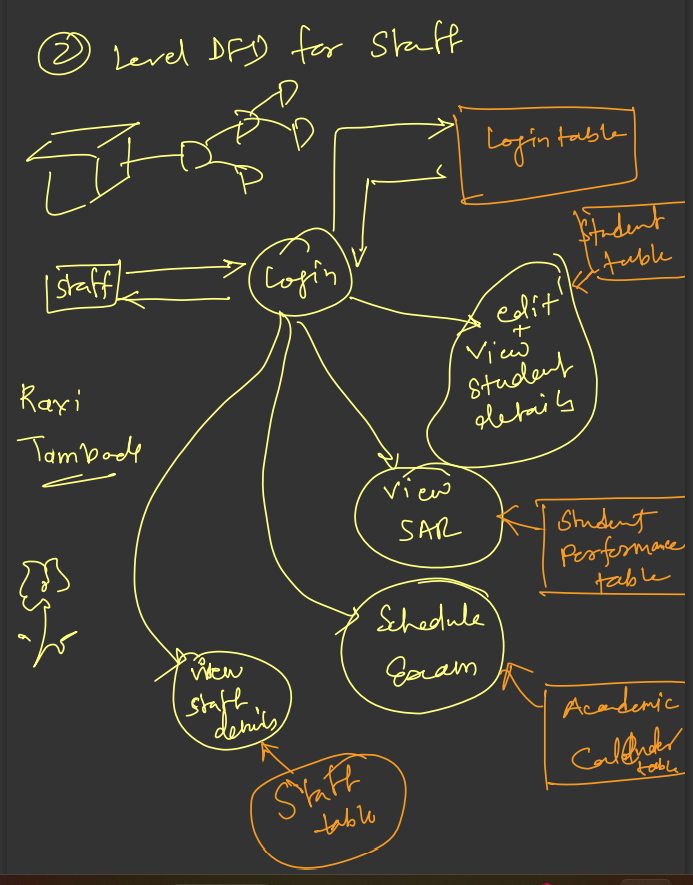 ② Level DFD for Staff
Login table
Student
table
Staff
Login
edit
+
View
Student
details
Raxi
Tambade
View
SAR
Student
Performance
table
Schedule
Exam
view
staff
details
Academic
Calender
table
Staff
table